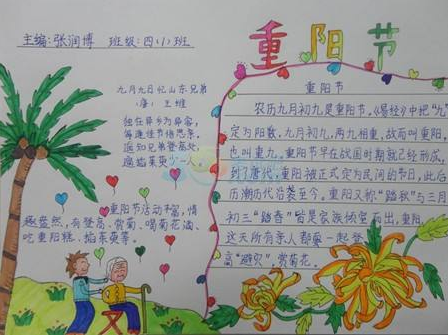 主编:张润博 班级:四(1)班
重阳节
九月九日忆山东兄弟
(唐)王维
独在异乡为异客,
每逢佳节倍思亲。
遥知兄弟登高处,
遍插茱萸少一人。
重阳节活动丰富,情
趣盎然,有登高、赏菊、喝菊花酒、
吃重阳糕、插茱萸等。
重阳节
农历九月初九是重阳节。《易经》中把“九”
定为阳数,九月初九,两九相重,故而叫重阳,
也叫重九。重阳节早在战国时期就已经形成,
到了唐代,重阳被正式定为民间的节日,此后
历朝历代沿袭至今。重阳又称“踏秋”与三月
初三“踏春”皆是家族倾室而出,重阳
这天所有亲人都要一起登
高“避灾”、赏菊花。